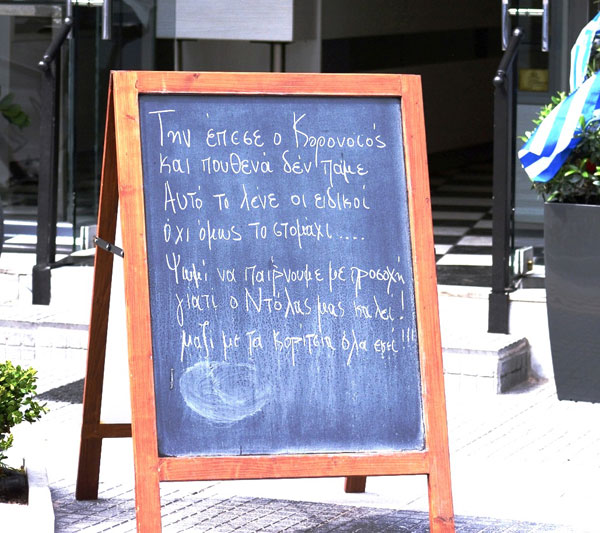 Την έπεσε ο Κορονοιός
και πουθενά δέν πάμε
Αυτό το λένε οι ειδικοί
όχι όμως το στομάχι....
Ψωμί να παίρνουμε με προσοχή
γιατί ο Ντόλας μας καλεί!
μαζί με τα κορίτσια όλα εκεί!!!